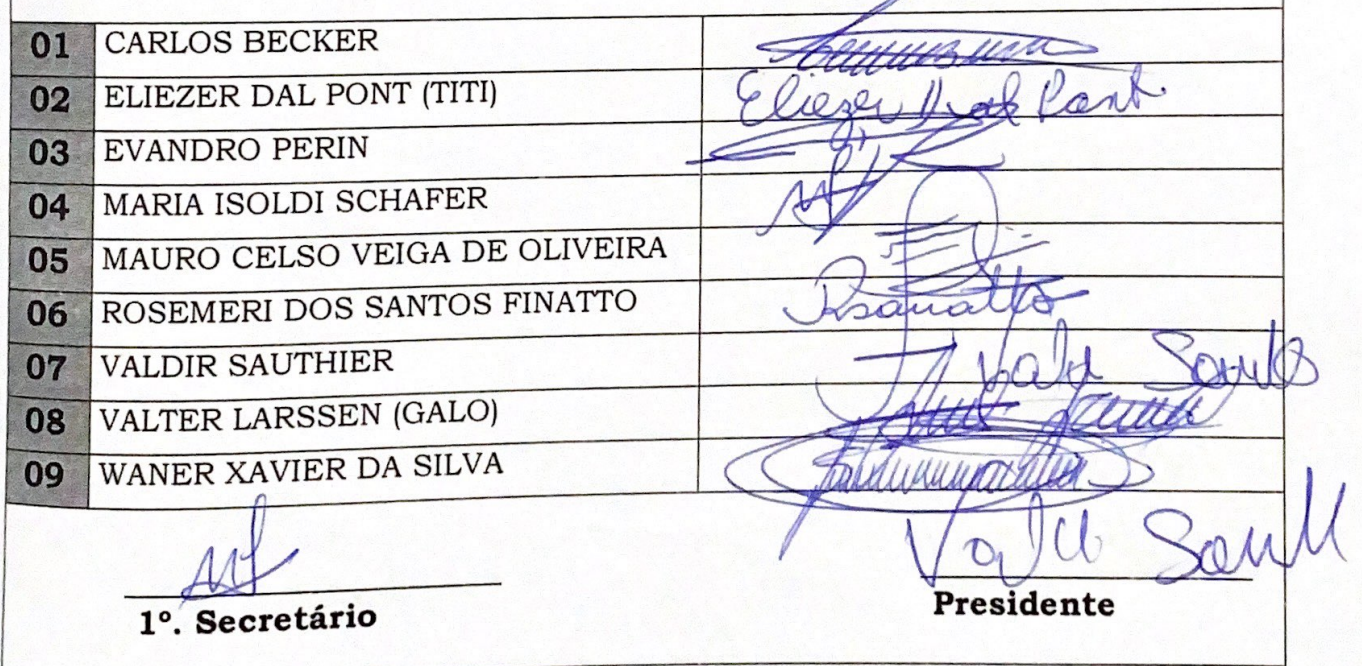 01 CARLOS BECKER
02 ELIEZER DAL PONT (TITI) Eliezer Dal Pont
03 EVANDRO PERIN
04 MARIA ISOLDI SCHAFER
05 MAURO CELSO VEIGA DE OLIVEIRA
06 ROSEMERI DOS SANTOS FINATTO
07 VALDIR SAUTHIER
08 VALTER LARSSEN (GALO)
09 WANER XAVIER DA SILVA
1º. Secretário
Presidente